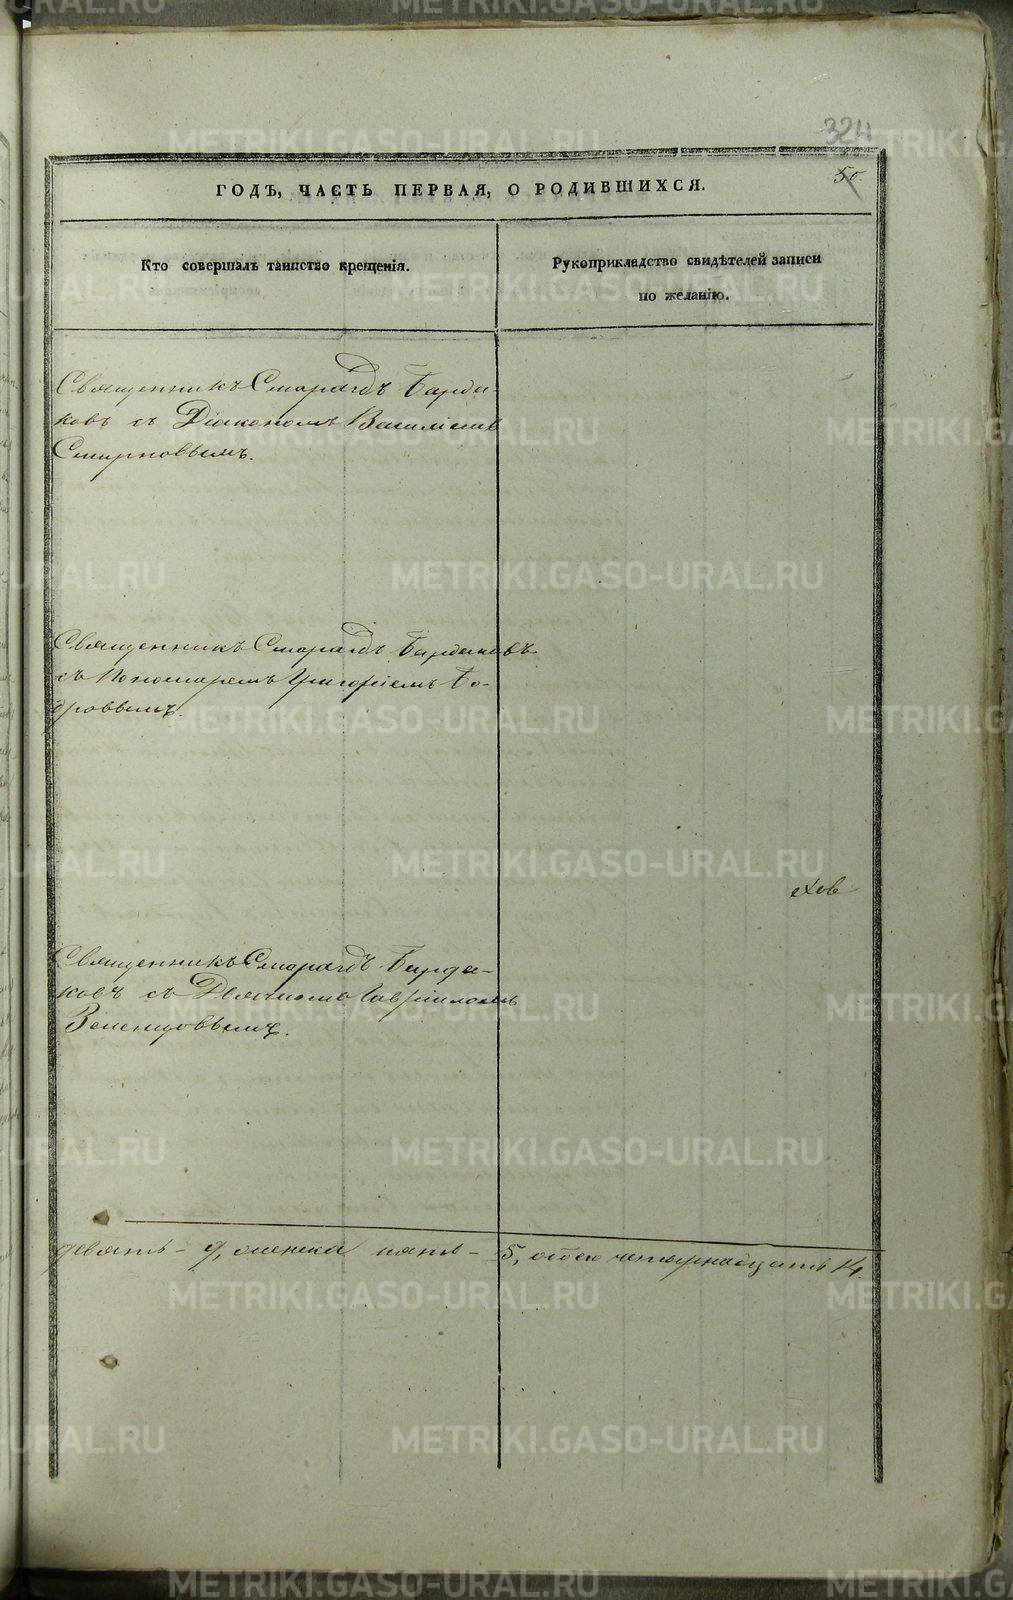 324
50
ГОДЪ, ЧАСТЬ ПЕРВАЯ, О РОДИВШИХСЯ.
Кто совершалъ таинство крещенія.
Рукоприкладство свидѣтелей записи
по желанію.
Священникъ Смарагдъ Барда-
ковъ съ Діакономъ Василіемъ
Смирновымъ.
Священникъ Смарагдъ Бардаковъ
съ Пономаремъ Григоріемъ Бо-
дровымъ.
Священникъ Смарагдъ Барда-
ковъ съ Дьячкомъ Гавріиломъ
Зеленцовымъ.
девять - 9, женска пять - 5, обоего четырнадцать 14.
METRIKI.GASO-URAL.RU